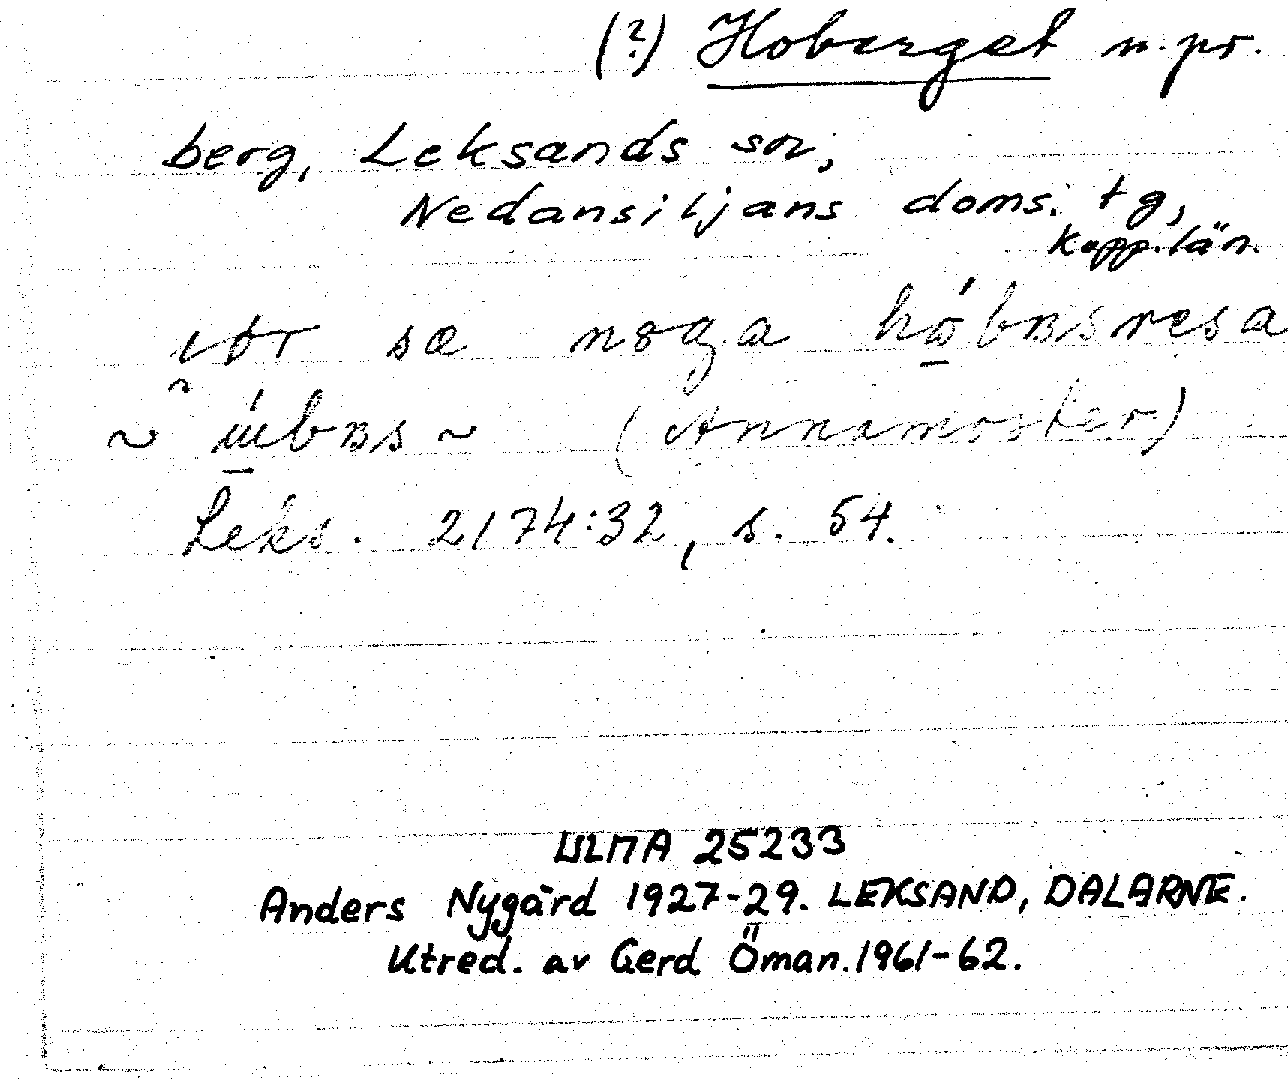 (?) Hoberget n.pr.
berg, Leksands sn,
Nedansiljans doms. tg,
Kopp. län.
sæ
~ ~ (Annamoster)
Leks. 2174:32, s. 54.
ULMA 25233
Anders Nygård 1927-29. LEKSAND, DALARNE.
Utred. av Gerd Öman. 1961-62.